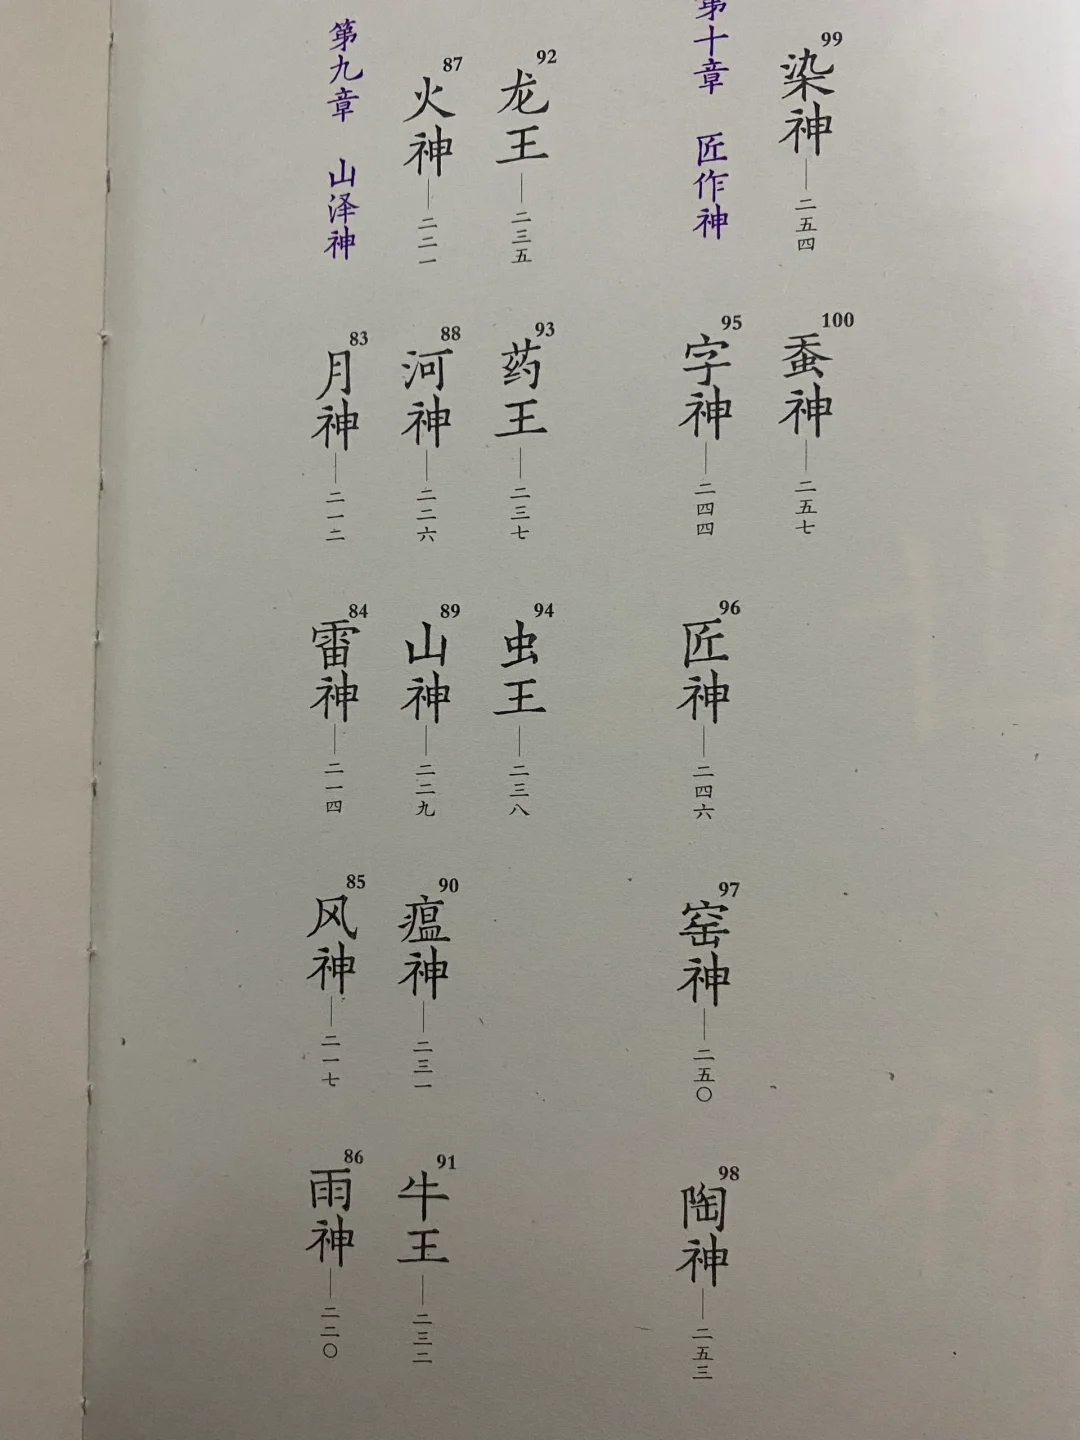 第九章 山泽神
83 月神——二一二
84 雷神——二一四
85 风神——二一七
86 雨神——二二〇
87 火神——二二一
88 河神——二二六
89 山神——二二九
90 瘟神——二三一
91 牛王——二三二
92 龙王——二三五
93 药王——二三七
94 虫王——二三八
第十章 匠作神
95 字神——二四四
96 匠神——二四六
97 窑神——二五〇
98 陶神——二五三
99 染神——二五四
100 蚕神——二五七